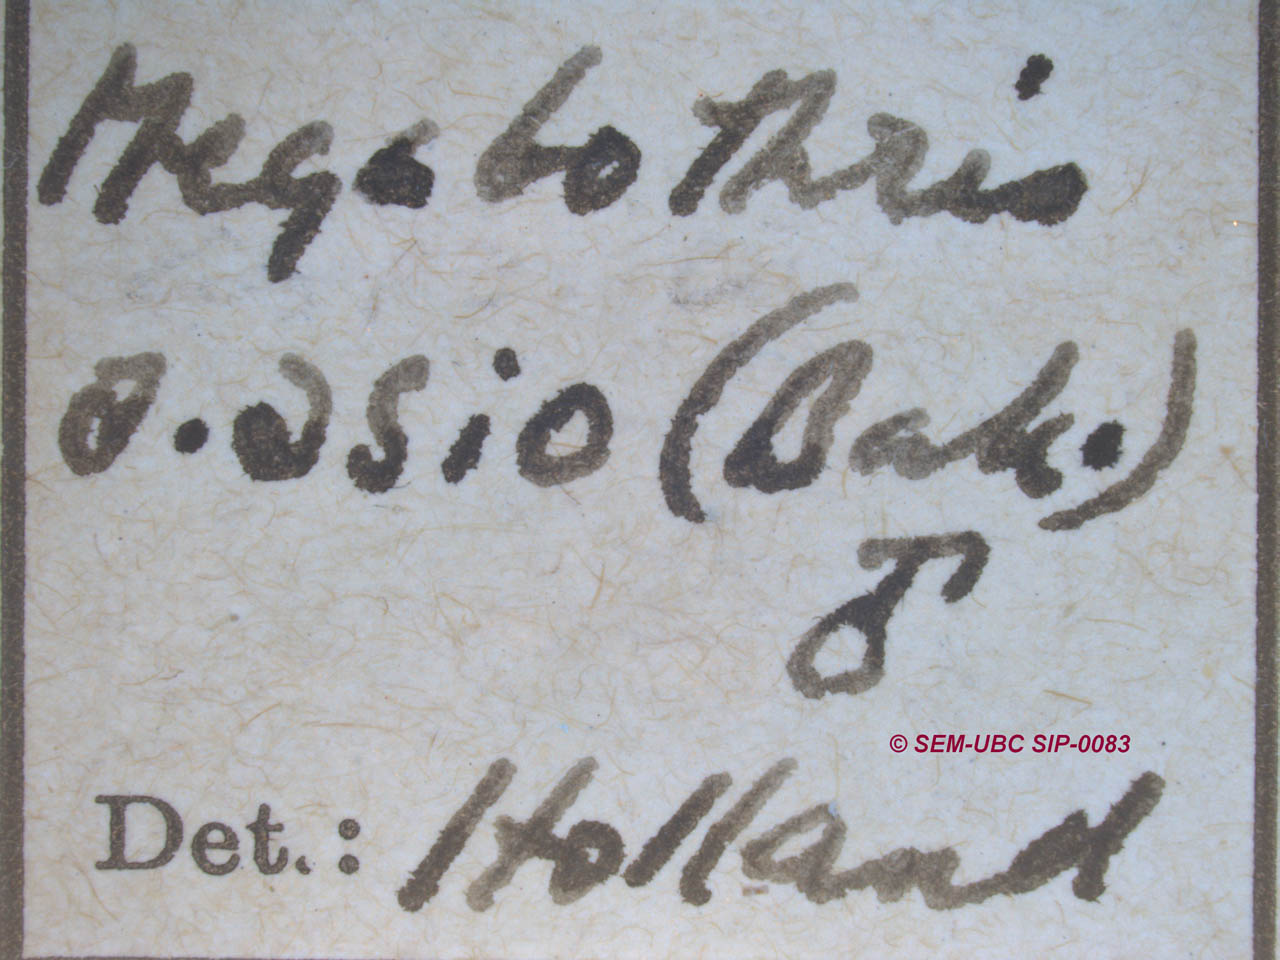 Megabothris
a. asio (Bak.)
♂
© SEM-UBC SIP-0083
Det.: Holland